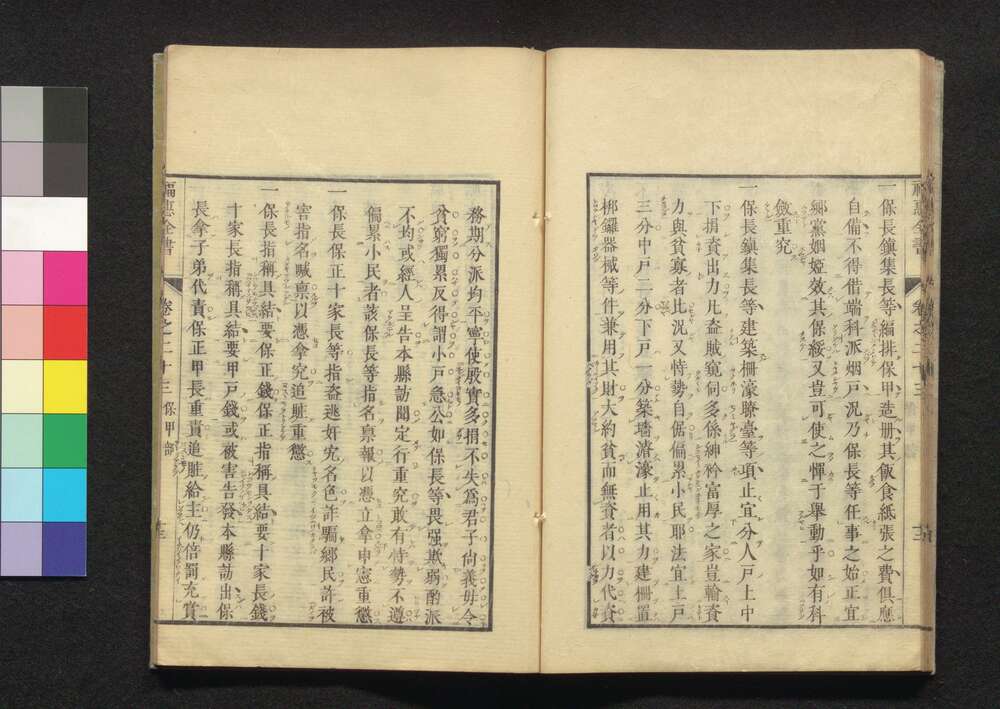 一保長鎭集長等編排保甲造册其飯食紙張之費俱應
自備不得借端科派烟戸況乃保長等任事之始正宜
郷黨姻婭效其保綏又豈可使之憚于舉動乎如有科
斂重究
一保長鎭集長等建築柵濠瞭臺等項止宜分人戸上中
下捐資出力凡盜賊窺伺多係紳衿富厚之家豈輸資
力與貧寡者比況又恃勢自倨偏累小民耶法宜上戸
三分中戸二分下戸一分築墻濬濠止用其力建柵置
梆鑼器械等件兼用其財大約貧而無資者以力代資
務期分派均平寧使殷實多捐不失爲君子尚義毋令
貧窮獨累反得謂小戸急公如保長等畏强欺弱酌派
不均或經人呈告本縣訪聞定行重究敢有恃勢不遵
偏累小民者該保長等指名禀報以憑立拿申憲重懲
一保長保正十家長等指盜逃奸宄名色詐騙郷民許被
害指名喊禀以憑拿究追贓重懲
一保長指稱具結要保正錢保正指稱具結要十家長錢
十家長指稱具結要甲戸錢或被害告發本縣訪出保
長拿子弟代責保正甲長重責追贓給主仍倍罰充賞
福惠全書
卷之二十三
保甲部